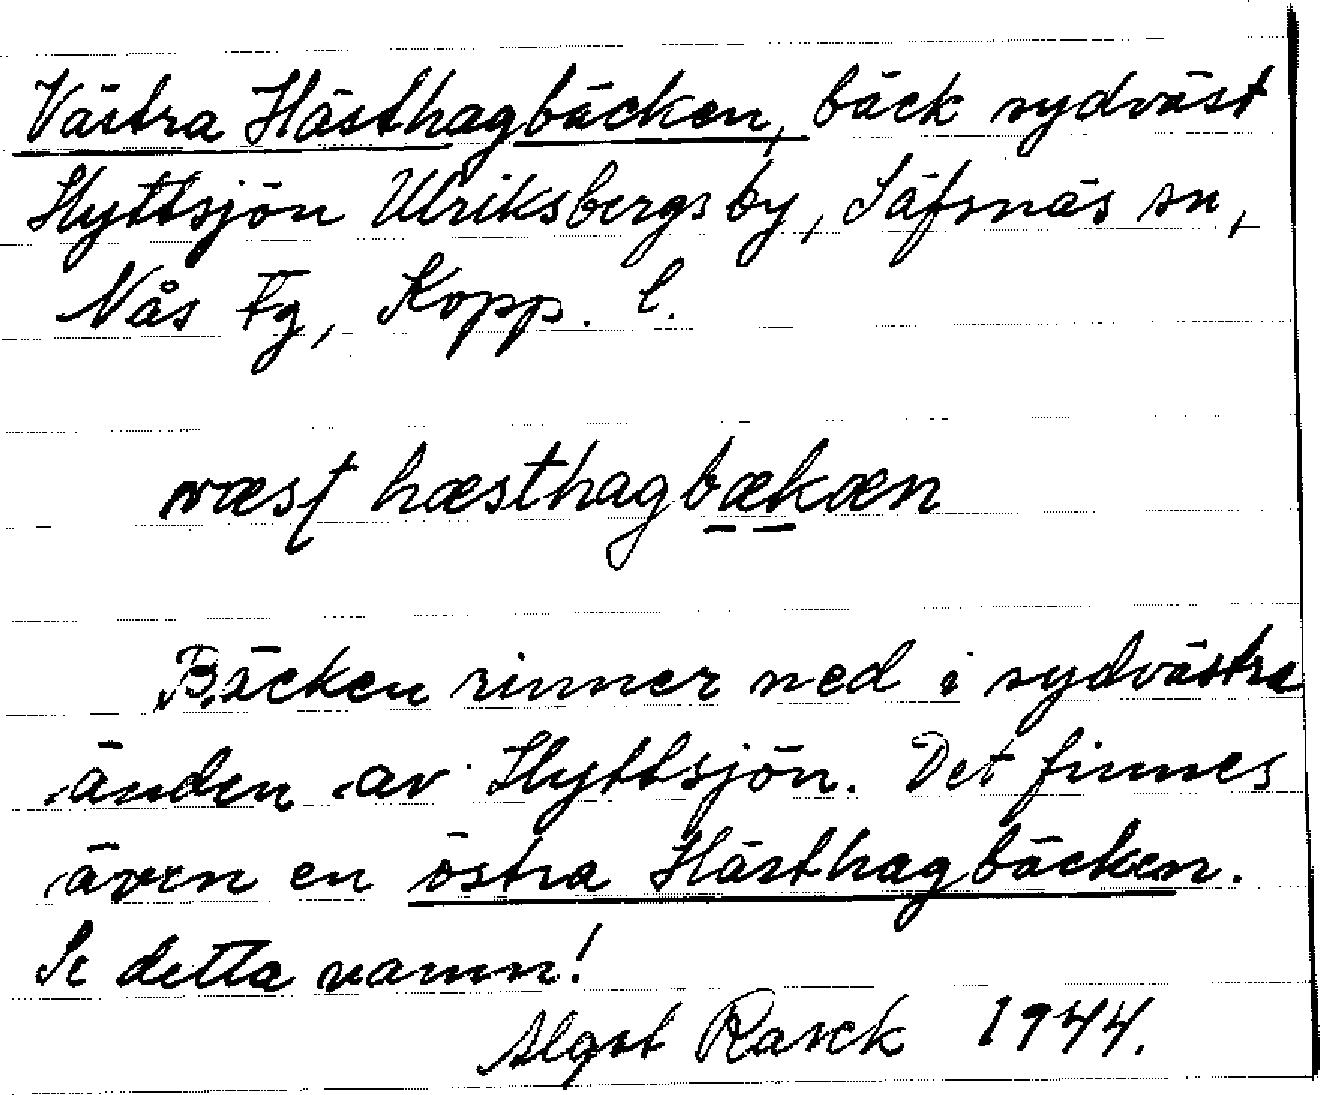 Västra Hästhagbäcken, bäck sydväst
Hyttsjön Ulriksbergs by, Säfsnäs sn,
Nås Fg, Kopp. l.
væst hæsthagbækæn
Bäcken rinner ned i sydvästra
änden av Hyttsjön. Det finnes
även en östra Hästhagbäcken.
Se detta namn!
Algot Rasck 1944.